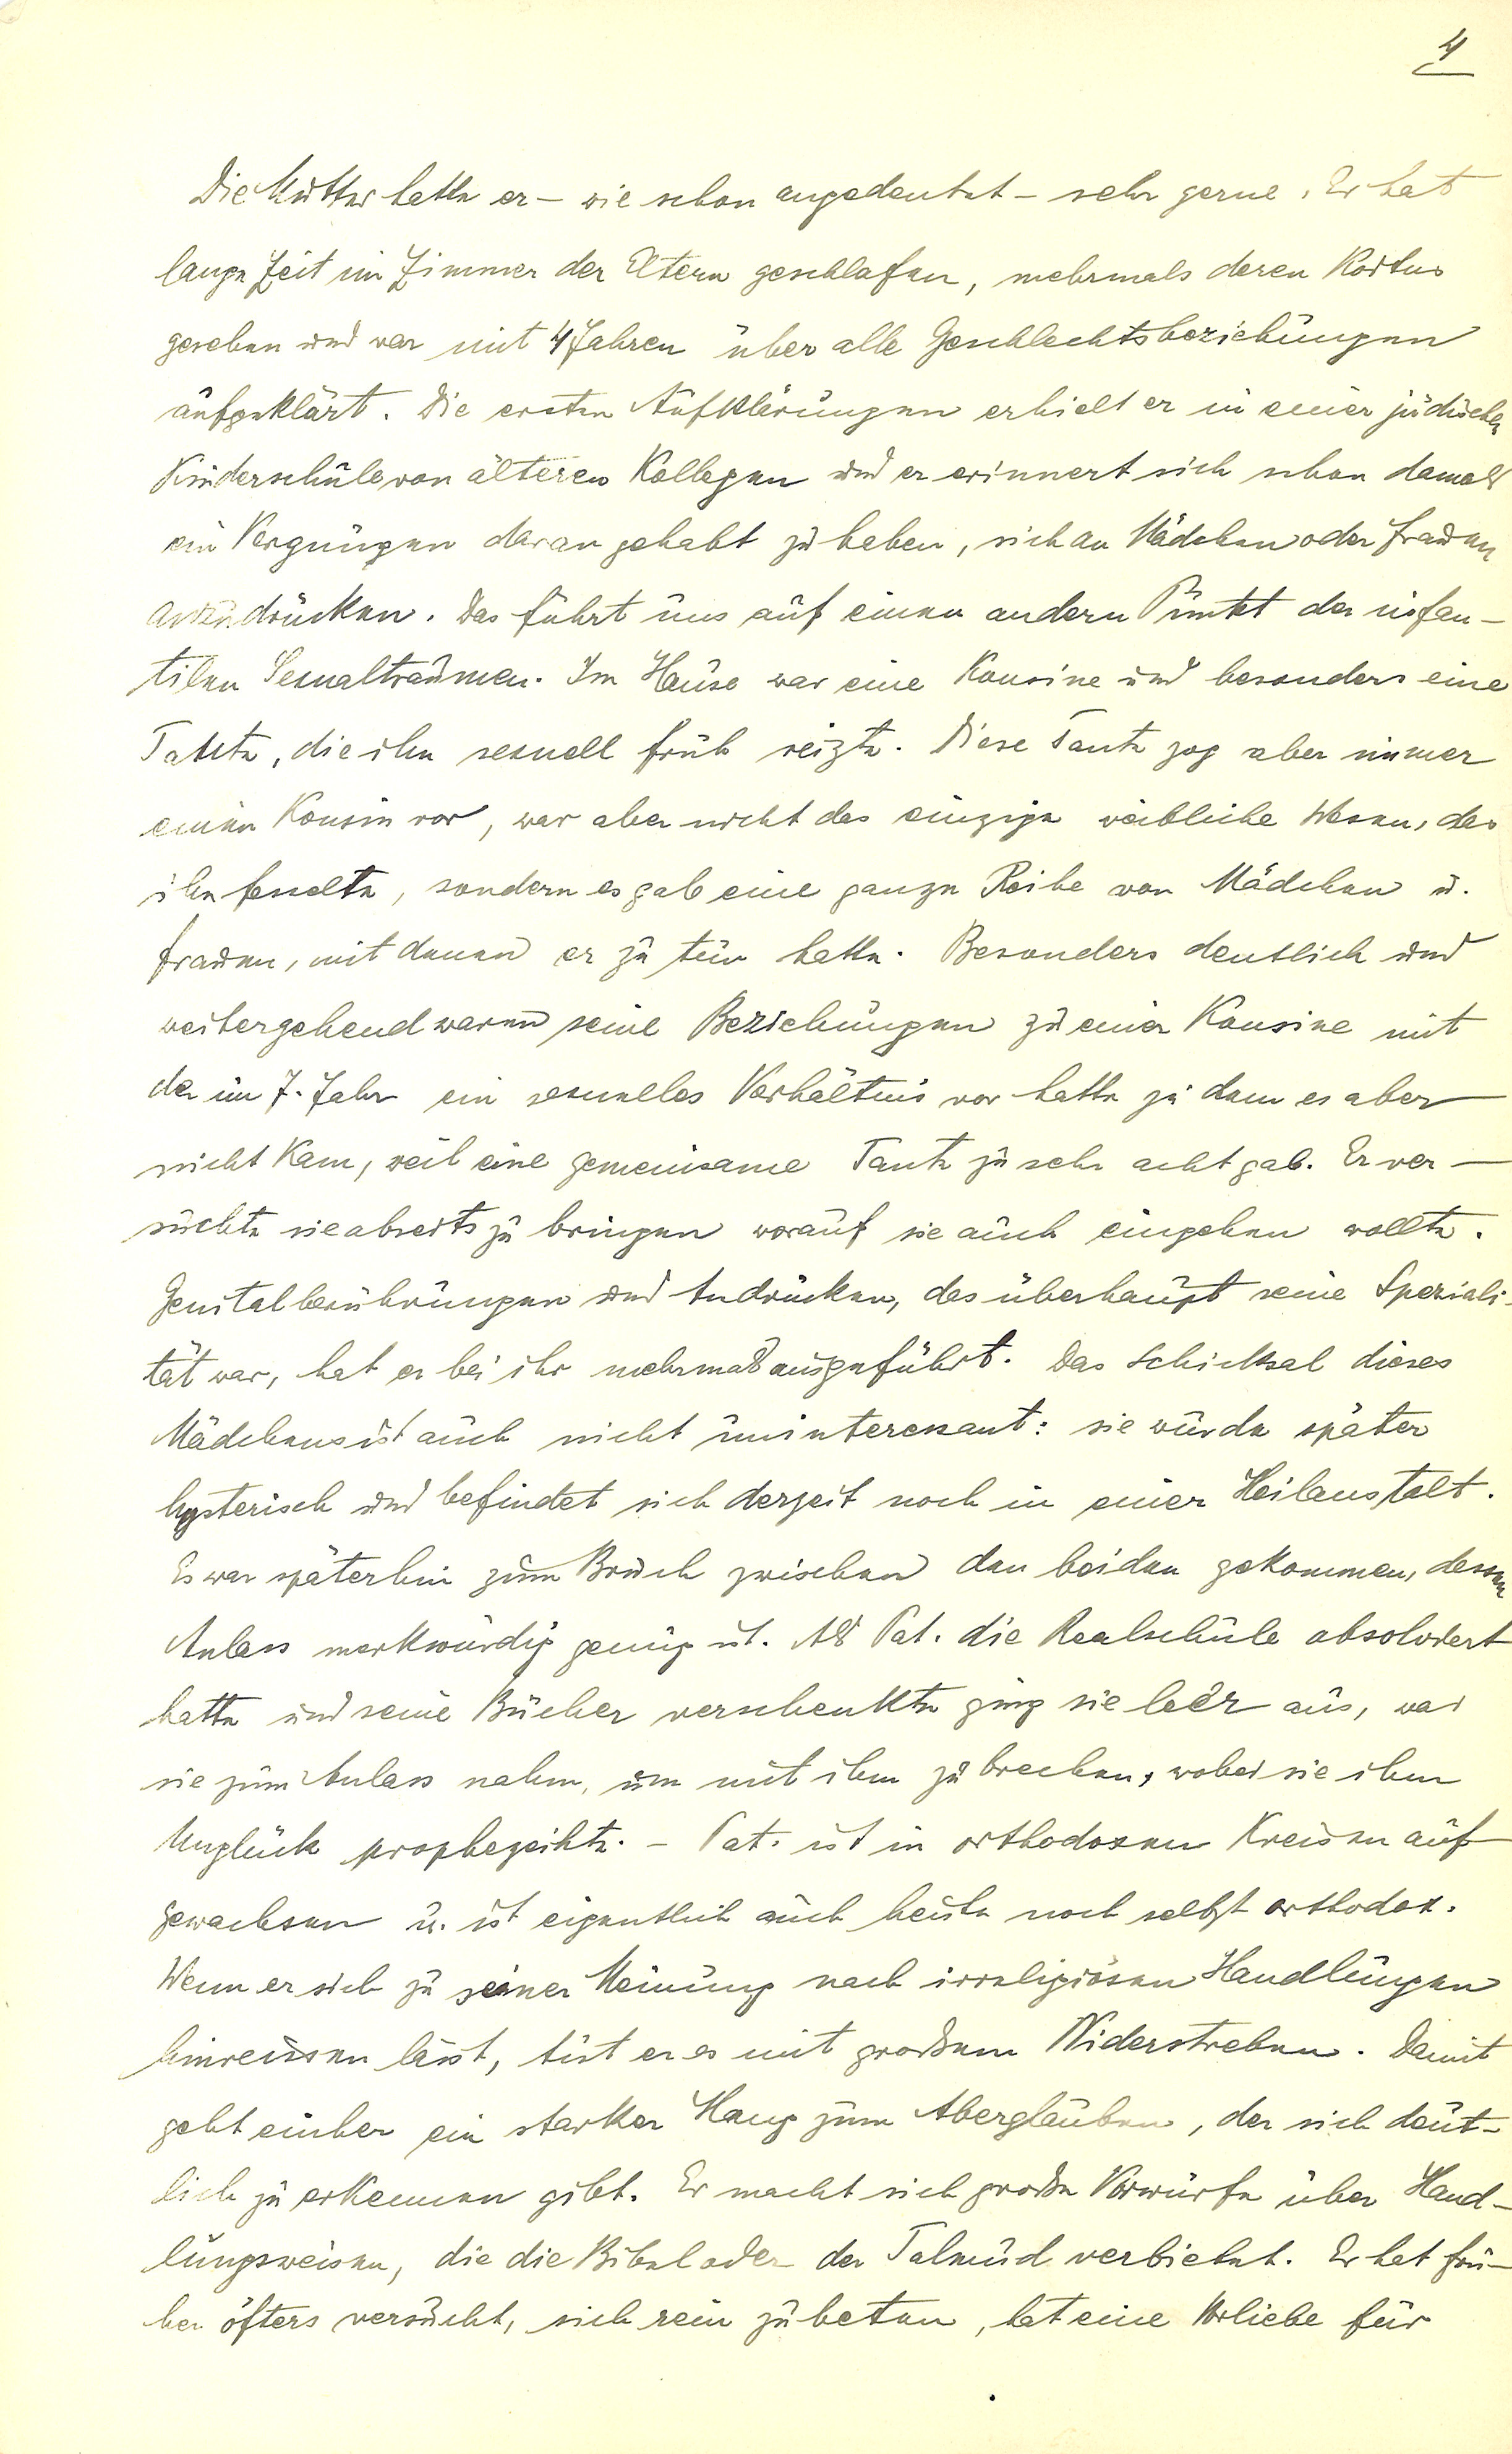 4
Die Mutter hatte er – wie schon angedeutet – sehr gerne. Er hat
lange Zeit im Zimmer der Eltern geschlafen, mehrmals deren Koitus
gesehen und war mit 4 Jahren über alle Geschlechtsbeziehungen
aufgeklärt. Die ersten Aufklärungen erhielt er in einer jüdischen
Kinderschule von älteren Kollegen und er erinnert sich schon damals
ein Vergnügen daran gehabt zu haben, sich an Mädchen oder Frauen
anzudrücken. Das führt uns auf einen andern Punkt der infan-
tilen Sexualträumen. Im Hause war eine Kousine und besonders eine
Tante, die ihn sexuell früh reizte. Diese Tante zog aber immer
einen Kousin vor, war aber nicht das einzige weibliche Wesen, das
ihn fesselte, sondern es gab eine ganze Reihe von Mädchen u.
Frauen, mit denen er zu tun hatte. Besonders deutlich und
weitergehend waren seine Beziehungen zu einer Kousine mit
der im 7. Jahr ein sexuelles Verhältnis vor hatte zu dem es aber
nicht kam, weil eine gemeinsame Tante zu sehr acht gab. Er ver-
suchte sie abseits zu bringen worauf sie auch eingehen wollte.
Genitalberührungen und Andrücken, das überhaupt seine Speziali-
tät war, hat er bei ihr mehrmals ausgeführt. Das Schicksal dieses
Mädchens ist auch nicht uninteressant: sie wurde später
hysterisch und befindet sich derzeit noch in einer Heilanstalt.
Es war späterhin zum Bruch zwischen den beiden gekommen, dessen
Anlass merkwürdig genug ist. Als Pat. die Realschule absolviert
hatte und seine Bücher verschenkte ging sie leer aus, was
sie zum Anlass nahm, um mit ihm zu brechen, wobei sie ihm
Unglück prophezeihte. – Pat. ist in orthodoxen Kreisen auf
gewachsen u. ist eigentlich auch heute noch selbst orthodox.
Wenn er sich zu seiner Meinung nach irreligiösen Handlungen
hinreissen lässt, tut er es mit großem Widerstreben. Damit
geht einher ein starker Hang zum Aberglauben, der sich deut-
lich zu erkennen gibt. Er macht sich große Vorwürfe über Hand-
lungsweisen, die die Bibel oder der Talmud verbietet. Er hat frü-
her öfters versucht, sich rein zu beten, hat eine Vorliebe für